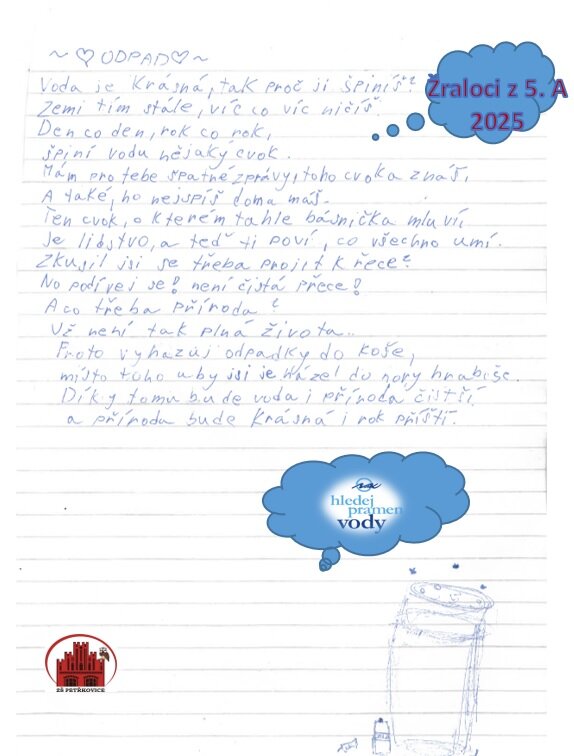 ~♡ODPAD♡~
Voda je krásná, tak proč ji špiníš?
Zemi tím stále, víc co víc ničíš.
Den co den, rok co rok,
špiní vodu nějaký cvok.
Mám pro tebe špatné zprávy, toho cvoka znáš,
A také, ho nejspíš doma máš.
Ten cvok, o kterém tahle básnička mluví
je lidstvo, a teď ti poví, co všechno umí.
Zkusil jsi se třeba projit k řece?
No podívej se! není čistá přece!
A co třeba příroda?
Už není tak plná života..
Proto vyhazuj odpadky do koše,
místo toho aby jsi je házel do nory hraboše.
Díky tomu bude voda i příroda čistší
a příroda bude krásná i rok příští.
Žraloci z 5. A
2025
hledej
pramen
vody
ZŠ PETŘKOVICE